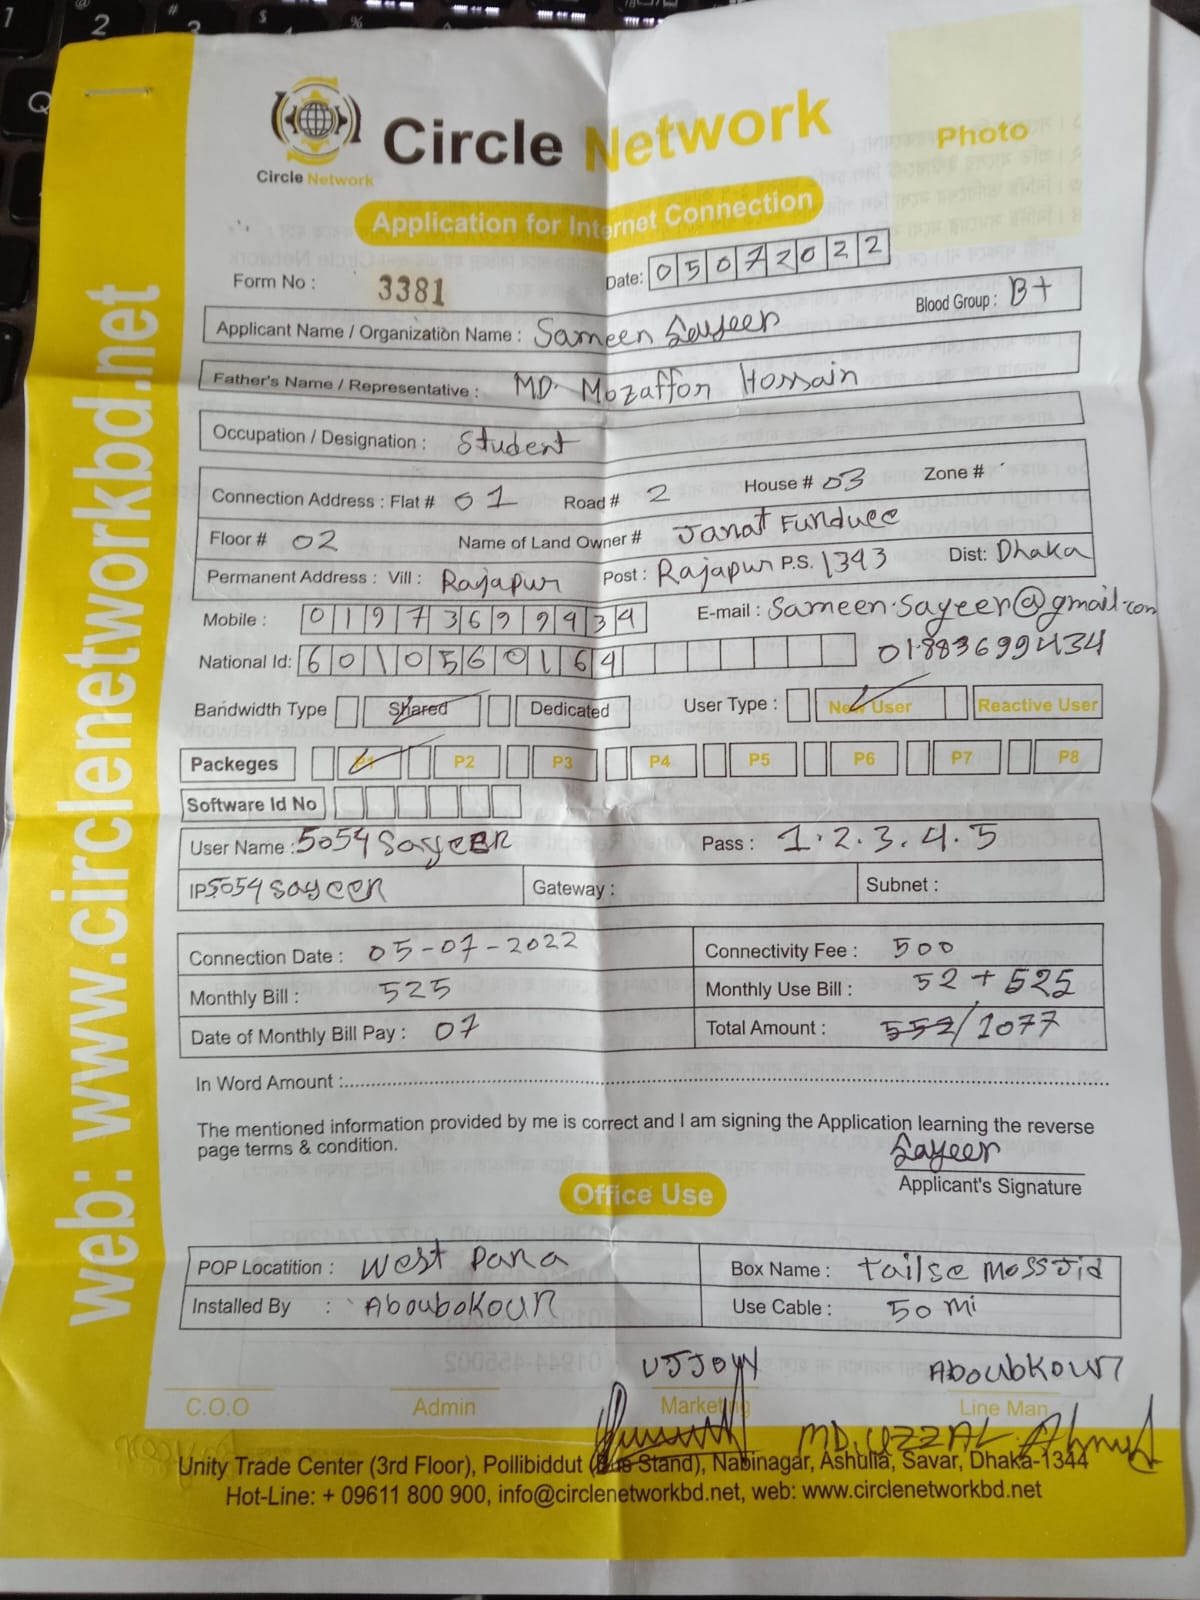 web: www.circlenetworkbd.net
Circle Network
Circle Network
Photo
Application for Internet Connection
Form No : 3381 Date: 05072022
Applicant Name / Organization Name : Sameen Sayeer Blood Group : B+
Father's Name / Representative : MD. Mozaffor Hossain
Occupation / Designation : Student
Connection Address : Flat # 01 Road # 2 House # 03 Zone #
Floor # 02 Name of Land Owner # Janat Funduee
Permanent Address : Vill : Rajapur Post : Rajapur P.S. 1343 Dist: Dhaka
Mobile : 01973699434 E-mail : Sameen.sayeer@gmail.com
National Id: 6010560164 01883699434
Bandwidth Type Shared Dedicated User Type : New User Reactive User
Packeges P1 P2 P3 P4 P5 P6 P7 P8
Software Id No
User Name : 5054 Sayeer Pass : 1.2.3.4.5
IP 5054 sayeer Gateway : Subnet :
Connection Date : 05-07-2022 Connectivity Fee : 500
Monthly Bill : 525 Monthly Use Bill : 52 + 525
Date of Monthly Bill Pay : 07 Total Amount : 552/1077
In Word Amount :
The mentioned information provided by me is correct and I am signing the Application learning the reverse
page terms & condition.
Sayeer
Applicant's Signature
Office Use
POP Locatition : West Para Box Name : tailse Mossjid
Installed By : Aboubokour Use Cable : 50 mi
UJJOW Aboubkour
C.O.O Admin Marketing Line Man
MD. UZZAL Ahmed
Unity Trade Center (3rd Floor), Pollibiddut (Bus Stand), Nabinagar, Ashulia, Savar, Dhaka-1344
Hot-Line: + 09611 800 900, info@circlenetworkbd.net, web: www.circlenetworkbd.net